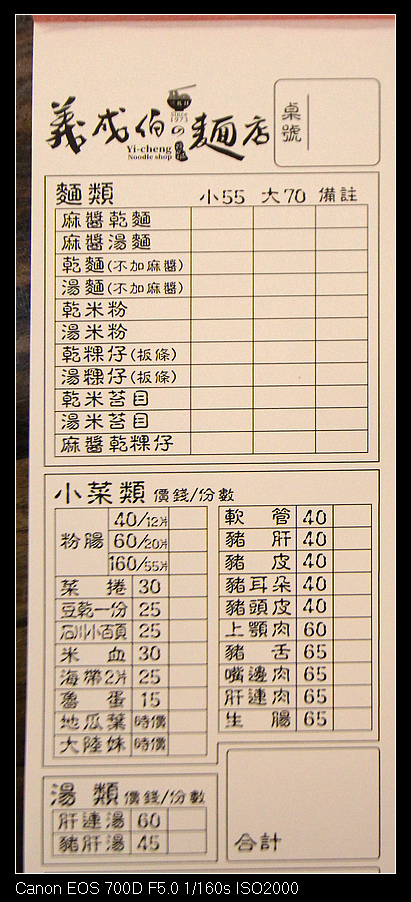 義成伯の麵店
since 1973
Yi-cheng
Noodle shop
桌號
麵類 小55 大70 備註
麻醬乾麵
麻醬湯麵
乾麵(不加麻醬)
湯麵(不加麻醬)
乾米粉
湯米粉
乾粿仔(粄條)
湯粿仔(粄條)
乾米苔目
湯米苔目
麻醬乾粿仔
小菜類 價錢/份數
粉腸 40/12片
60/20片
160/55片
菜捲 30
豆乾一份 25
石川小百頁 25
米血 30
海帶2片 25
魯蛋 15
地瓜葉 時價
大陸妹 時價
軟管 40
豬肝 40
豬皮 40
豬耳朵 40
豬頭皮 40
上顎肉 60
豬舌 65
嘴邊肉 65
肝連肉 65
生腸 65
湯類 價錢/份數
肝連湯 60
豬肝湯 45
合計
Canon EOS 700D F5.0 1/160s ISO2000